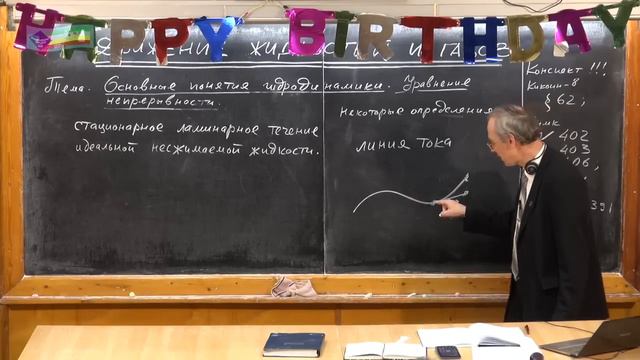 HAPPY BIRTHDAY
ДВИЖЕНИЕ ЖИДКОСТЕЙ И ГАЗОВ
Тема. Основные понятия гидродинамики. Уравнение
непрерывности.
стационарное ламинарное течение
идеальной несжимаемой жидкости.
некоторые определения
линия тока
Конспект !!!
Кикоин-8
§ 62;
402
403